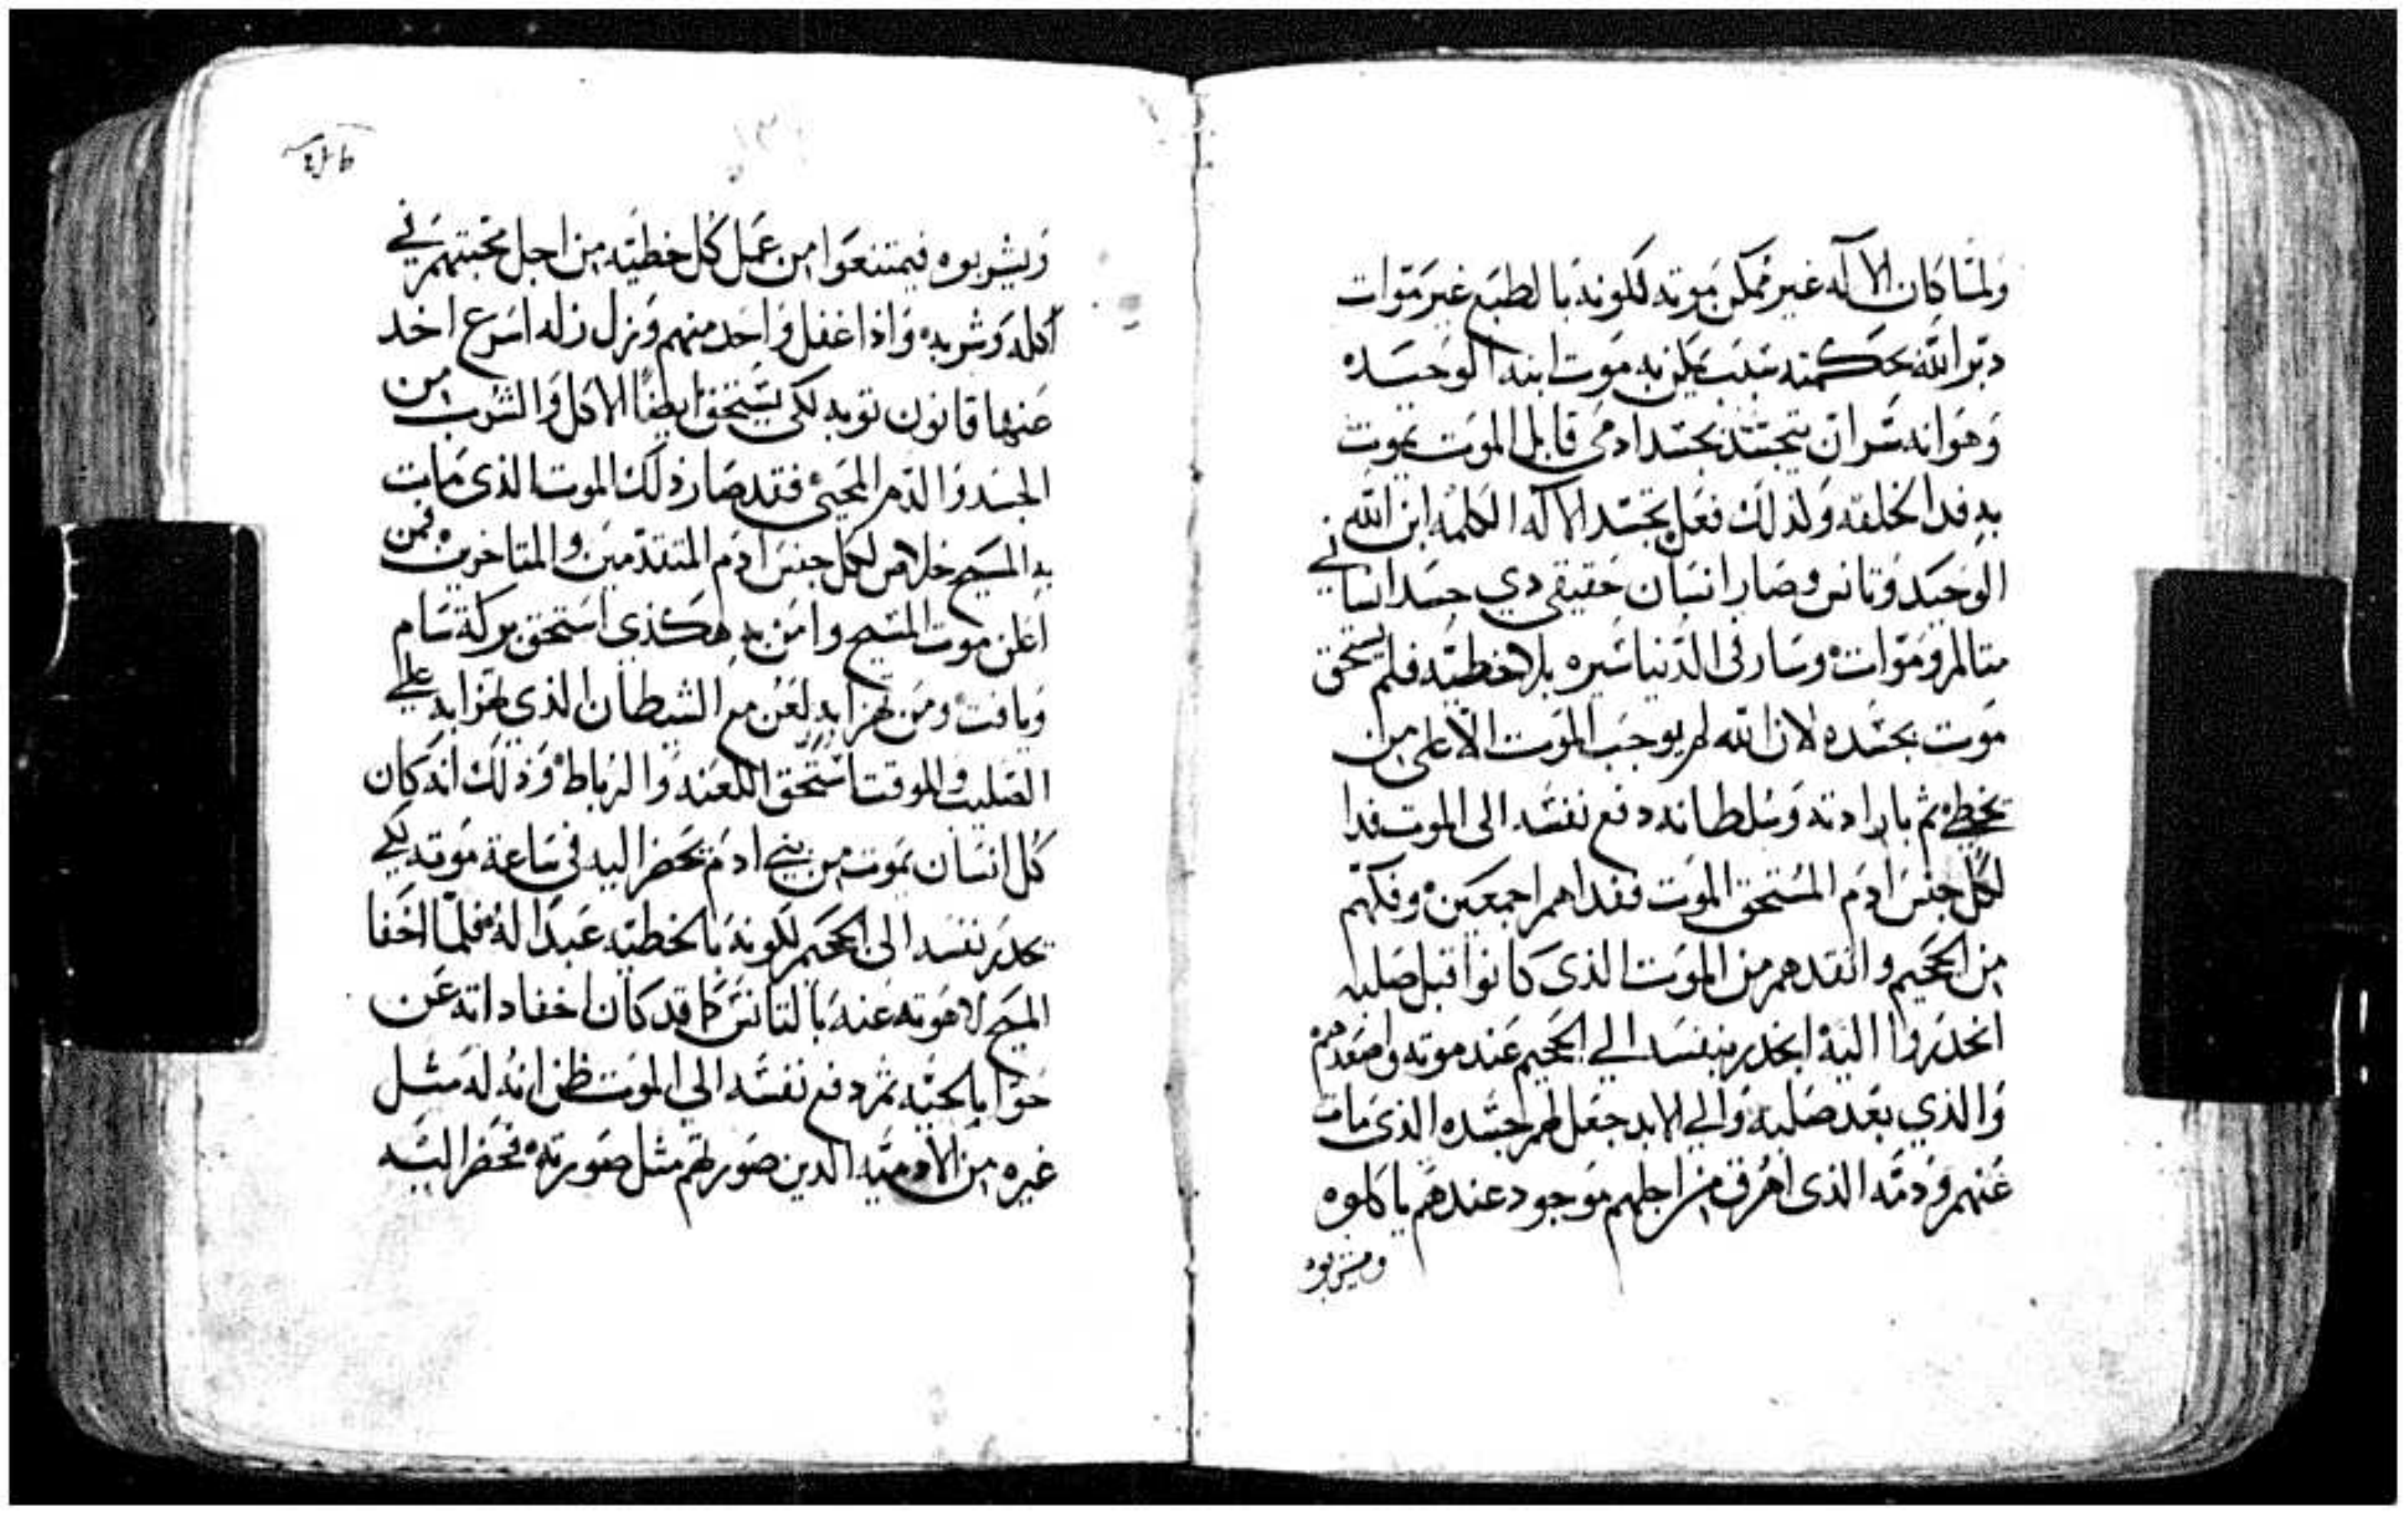 ولما كان الاله غير ممكن موته لكونه بالطبع غير موات
دبر الله بحكمته سبب يمكن به موت ابنه الوحيده
وهو انه سر ان يتجسد بجسد ادمي قابل الموت يموت
به فدا الخلقه ولذلك فعل تجسد الاله الكلمه ابن الله
الوحيد وتانس وصار انسان حقيقي دي جسد انساني
متالم وموات وسار في الدنيا سيره بلا خطيه فلم يستحق
موت بجسده لان الله لم يوجب الموت الا على من
يخطي ثم بارادته وسلطانه دفع نفسه الى الموت فدا
لكل جنس ادم المستحق الموت ففداهم اجمعين وفكهم
من الجحيم وانقدهم من الموت الذى كانوا قبل صلبه
انحدروا اليه انحدر بنفسه الي الجحيم عند موته واصعدهم
والذي بعد صلبه والي الابد جعل لهم جسده الذى مات
عنهم ودمه الذى اهرق من اجلهم موجود عندهم ياكلوه
ويشربوه
ويشربوه فيمتنعوا من عمل كل خطيه من اجل محبتهم في
اكله وشربه واذا غفل واحد منهم ونزل زله اسرع اخد
عنها قانون توبه لكي يستحق ايضا الاكل والشرب من
الجسد والدم المحيي فقد صار ذلك الموت الذى مات
به المسيح خلاص لكل جنس ادم المتقدمين والمتاخرين فمن
اعلن موت المسيح وامن به هكذى استحق بركة سام
ويافت ومن تهزا به لعن مع الشطان الذي تهزا به على
الصليب وللوقت استحق اللعنه والرباط وذلك انه كان
كل انسان يموت من بني ادم يحضر اليه في ساعة موته لكي
يحدر نفسه الى الجحيم لكونه بالخطيه عبدا له فلما اخفا
المسيح لاهوته عنه بالتانس كما قد كان اخفا داته عن
حوا بالحيه ثم دفع نفسه الي الموت ظن انه له مثل
غيره من الادميه الدين صورتهم مثل صورته فحضر اليه